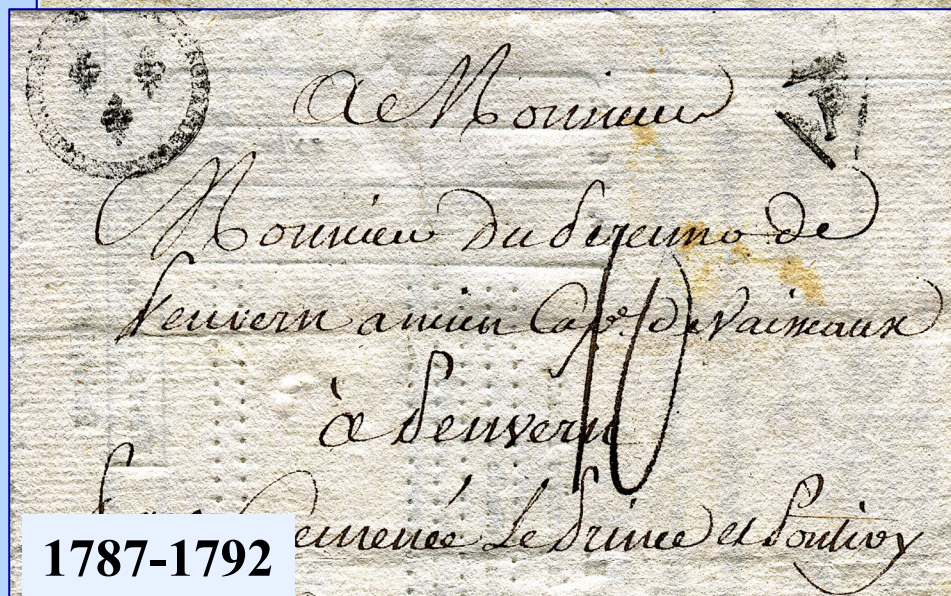 A Monsieur
Monsieur du Perenno de
Penvern ancien Cap.e de Vaisseaux
10
à Penvern
Le Prince et Pontivy
1787-1792